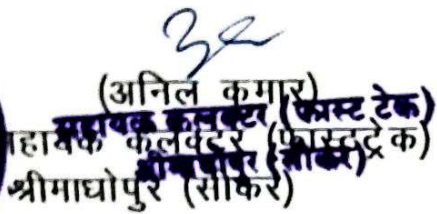 (अनिल कुमार)
सहायक कलक्टर (फास्ट टेक)
सहायक कलेक्टर (फास्टट्रेक)
श्रीमाधोपुर (सीकर)
श्रीमाधोपुर (सीकर)